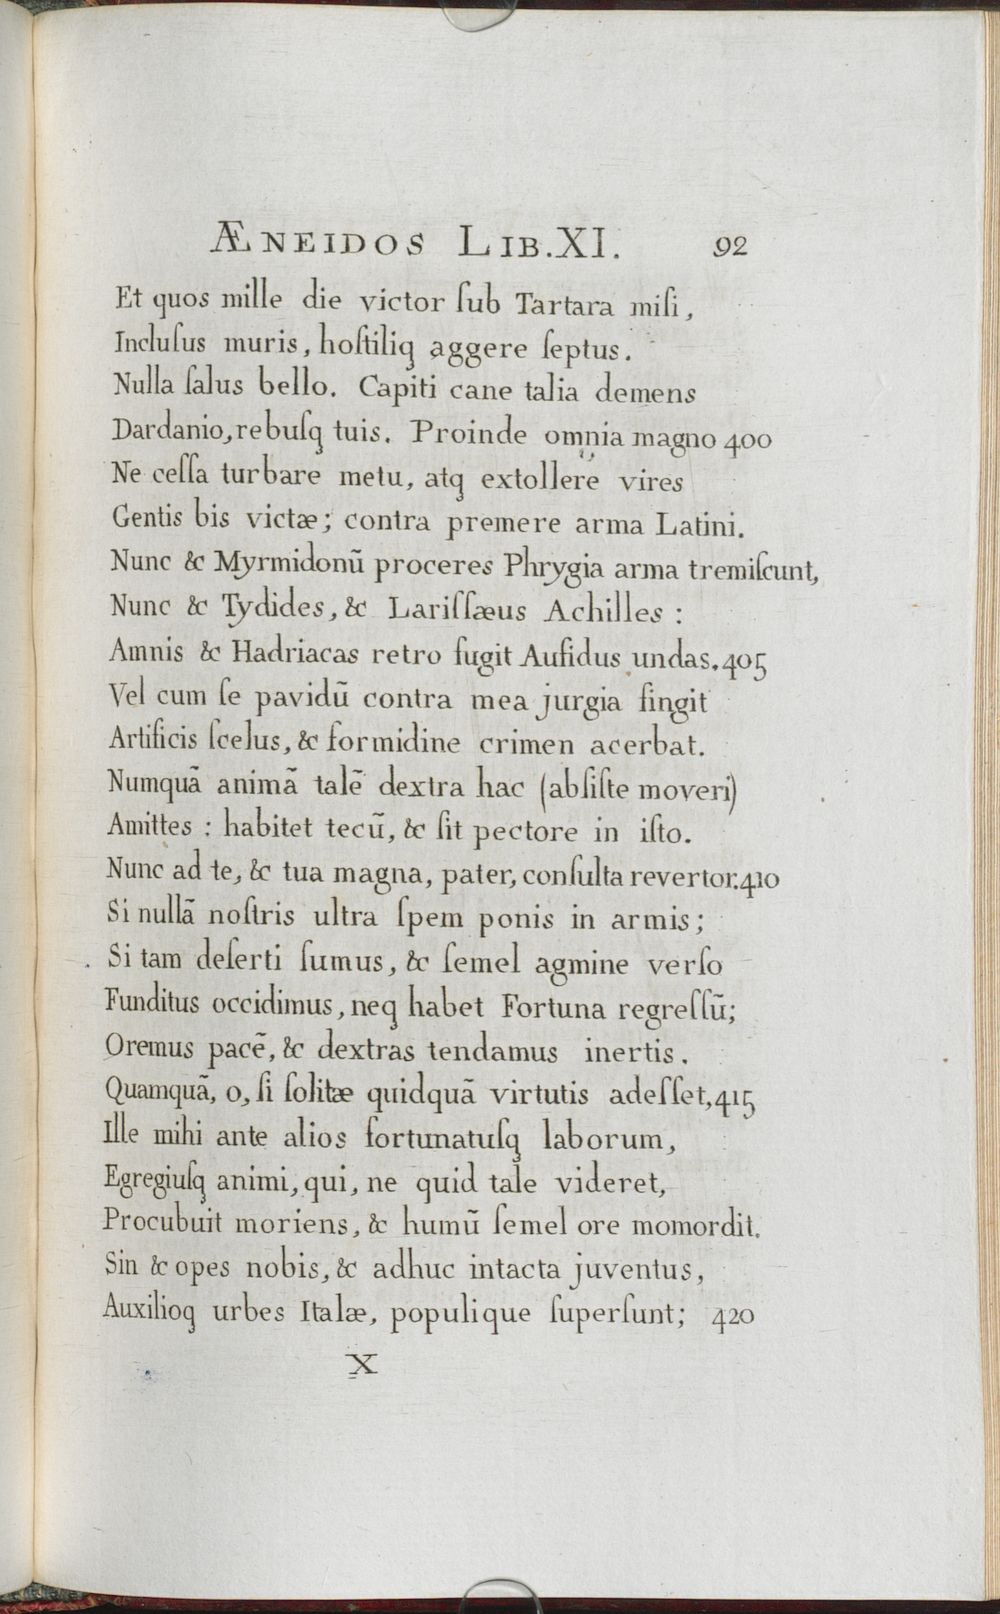 ÆNEIDOS LIB.XI. 92
Et quos mille die victor ſub Tartara miſi,
Incluſus muris, hoſtiliq̢ aggere ſeptus.
Nulla ſalus bello. Capiti cane talia demens
Dardanio, rebuſq̢ tuis. Proinde omnia magno 400
Ne ceſſa turbare metu, atq̢ extollere vires
Gentis bis victæ; contra premere arma Latini.
Nunc & Myrmidonũ proceres Phrygia arma tremiſcunt,
Nunc & Tydides, & Lariſſæus Achilles :
Amnis & Hadriacas retro fugit Aufidus undas. 405
Vel cum ſe pavidũ contra mea jurgia fingit
Artificis ſcelus, & formidine crimen acerbat.
Numquã animã talẽ dextra hac (abſiſte moveri)
Amittes : habitet tecũ, & ſit pectore in iſto.
Nunc ad te, & tua magna, pater, conſulta revertor. 410
Si nullã noſtris ultra ſpem ponis in armis;
Si tam deſerti ſumus, & ſemel agmine verſo
Funditus occidimus, neq̢ habet Fortuna regreſſũ;
Oremus pacẽ, & dextras tendamus inertis.
Quamquã, o, ſi ſolitæ quidquã virtutis adeſſet, 415
Ille mihi ante alios fortunatuſq̢ laborum,
Egregiuſq̢ animi, qui, ne quid tale videret,
Procubuit moriens, & humũ ſemel ore momordit.
Sin & opes nobis, & adhuc intacta juventus,
Auxilioq̢ urbes Italæ, populique ſuperſunt; 420
X